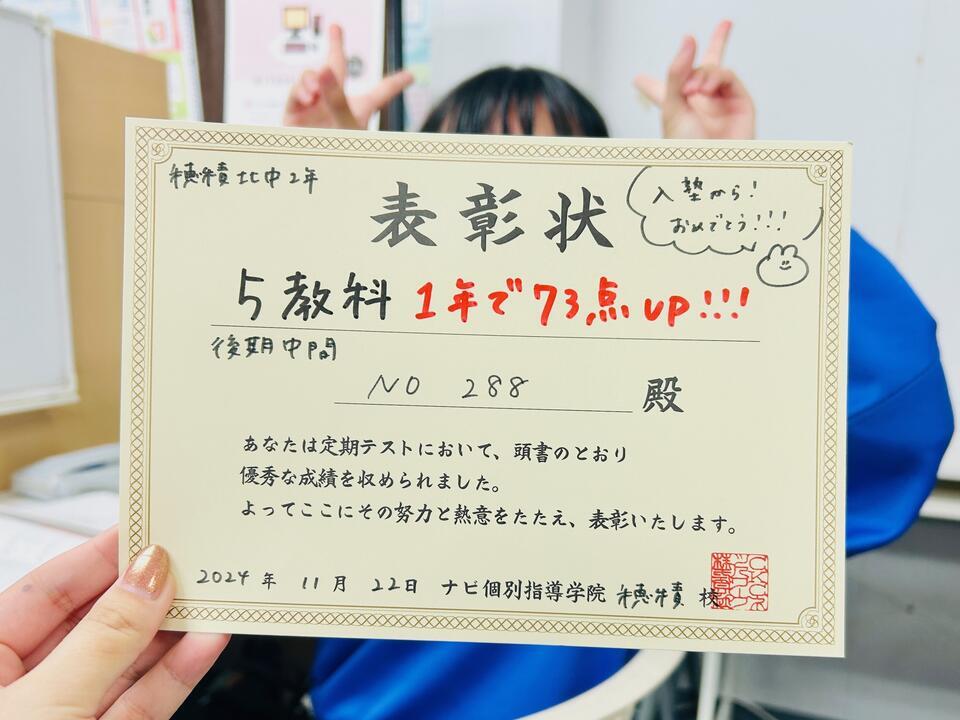 穂積北中2年
表彰状
入塾から!
おめでとう!!!
5教科 1年で73点UP!!!
後期中間
NO 288 殿
あなたは定期テストにおいて、頭書のとおり
優秀な成績を収められました。
よってここにその努力と熱意をたたえ、表彰いたします。
2024年 11月 22日 ナビ個別指導学院 穂積 校